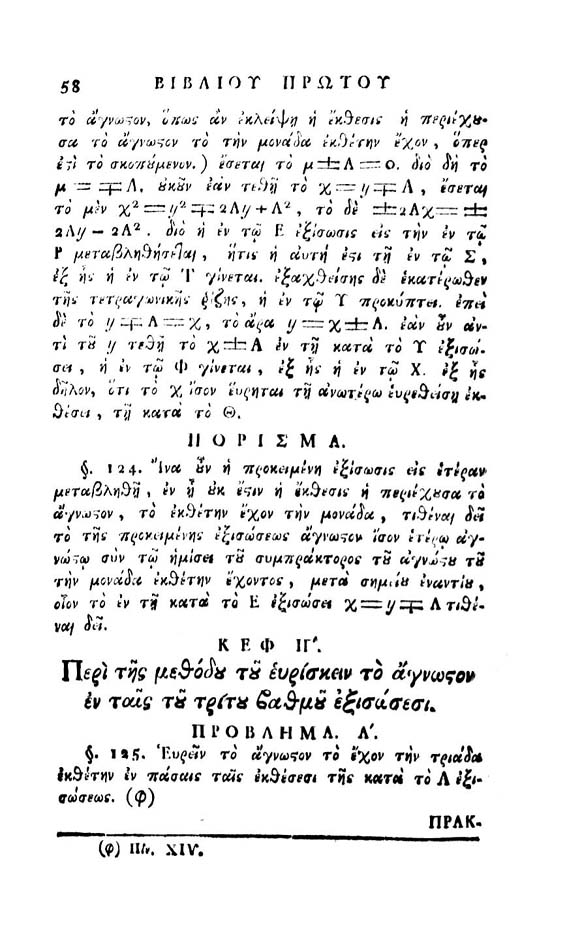 58 ΒΙΒΛΙΟΥ ΠΡΩΤΟΥ
τὸ ἄγνωςον, ὅπως ἂν ἐκλείψῃ ἡ ἔκθεσις ἡ περιέχȣ-
σα τὸ ἄγνωςον τὸ τὴν μονάδα ἐκθέτην ἔχον, ὅπερ
ἐςὶ τὸ σκοπȣ́μενον.) ἔσεται τὸ μ±Λ=0. διὸ δὴ τὸ
μ=∓Λ. ȣ̓κȣ͂ν ἐὰν τεθῇ τὸ χ=y∓Λ, ἔσεται
τὸ μὲν χ²=y²∓2Λy+Λ², τὸ δὲ ±2Λχ=±
2Λy−2Λ². διὸ ἡ ἐν τῷ Ε ἐξίσωσις εἰς τὴν ἐν τῷ
Ρ μεταβληθήσεται, ἥτις ἡ αὐτή ἐςι τῇ ἐν τῷ Σ,
ἐξ ἧς ἡ ἐν τῷ Τ γίνεται. ἐξαχθείσης δὲ ἑκατέρωθεν
τῆς τετραγωνικῆς ῥίζης, ἡ ἐν τῷ Υ προκύπτει. ἐπεὶ
δὲ τὸ y∓Λ=χ, τὸ ἄρα y=χ±Λ. ἐὰν ȣ̓͂ν ἀν-
τὶ τȣ͂ y τεθῇ τὸ χ±Λ ἐν τῇ κατὰ τὸ Υ ἐξισώ-
σει, ἡ ἐν τῷ Φ γίνεται, ἐξ ἧς ἡ ἐν τῷ Χ. ἐξ ἧς
δῆλον, ὅτι τὸ χ ἴσον εὕρηται τῇ ἀνωτέρω εὑρεθείσῃ ἐκ-
θέσει, τῇ κατὰ τὸ Θ.
ΠΟΡΙΣΜΑ.
§. 124. Ἵνα ȣ̓͂ν ἡ προκειμένη ἐξίσωσις εἰς ἑτέραν
μεταβληθῇ, ἐν ᾗ ȣ̓κ ἔςιν ἡ ἔκθεσις ἡ περιέχȣσα τὸ
ἄγνωςον, τὸ ἐκθέτην ἔχον τὴν μονάδα, τιθέναι δεῖ
τὸ τῆς προκειμένης ἐξισώσεως ἄγνωςον ἴσον ἑτέρῳ ἀγ-
νώςῳ σὺν τῷ ἡμίσει τȣ͂ συμπράκτορος τȣ͂ ἀγνώςȣ τȣ͂
τὴν μονάδα ἐκθέτην ἔχοντος, μετὰ σημείȣ ἐναντίȣ,
οἷον τὸ ἐν τῇ κατὰ τὸ Ε ἐξισώσει χ=y∓Λ τιθέ-
ναι δεῖ.
ΚΕΦ ΙΓ'.
Περὶ τῆς μεθόδȣ τȣ͂ εὑρίσκειν τὸ ἄγνωςον
ἐν ταῖς τȣ͂ τρίτȣ βαθμȣ͂ ἐξισώσεσι.
ΠΡΟΒΛΗΜΑ. Α'.
§. 125. Εὑρεῖν τὸ ἄγνωςον τὸ ἔχον τὴν τριάδα
ἐκθέτην ἐν πάσαις ταῖς ἐκθέσεσι τῆς κατὰ τὸ Λ ἐξι-
σώσεως. (φ)
ΠΡΑΚ-
(φ) Πίν. XIV.